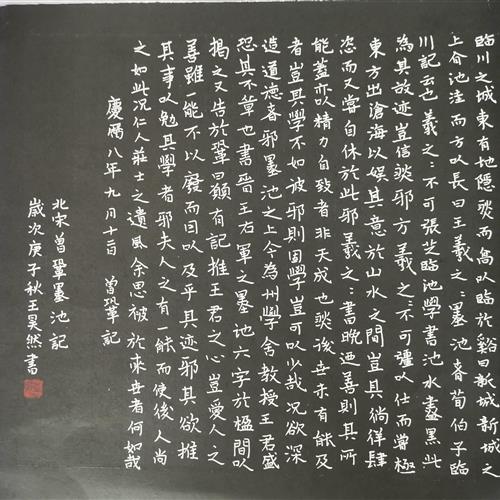 臨川之城東有地隱然而高以臨於谿曰新城新城之
上有池洼而方以長曰王羲之:墨池者荀伯子臨
川記云也羲之:不可張芝臨池學書池水盡黑此
為其故迹豈信然邪方羲之:不可彊以仕而嘗極
東方出滄海以娛其意於山水之間豈其徜徉肆
恣而又嘗自休於此邪羲之:書晚迺善則其所
能蓋亦以精力自致者非天成也然後世未有能及
者豈其學不如彼邪則固學豈可以少哉況欲深
造道德者邪墨池之上今為州學舍教授王君盛
恐其不章也書晉王右軍之墨池六字於楹間以
揭之又告於鞏曰願有記推王君之心豈愛人之
善雖一能不以廢而因以及乎其迹邪其欲推
其事以勉其學者邪夫人之有一能而使後人尚
之如此况仁人莊士之遺風余思被於來世者何如哉
慶曆八年九月十二日 曾鞏記
北宋曾鞏墨池記
歲次庚子秋王昊然書